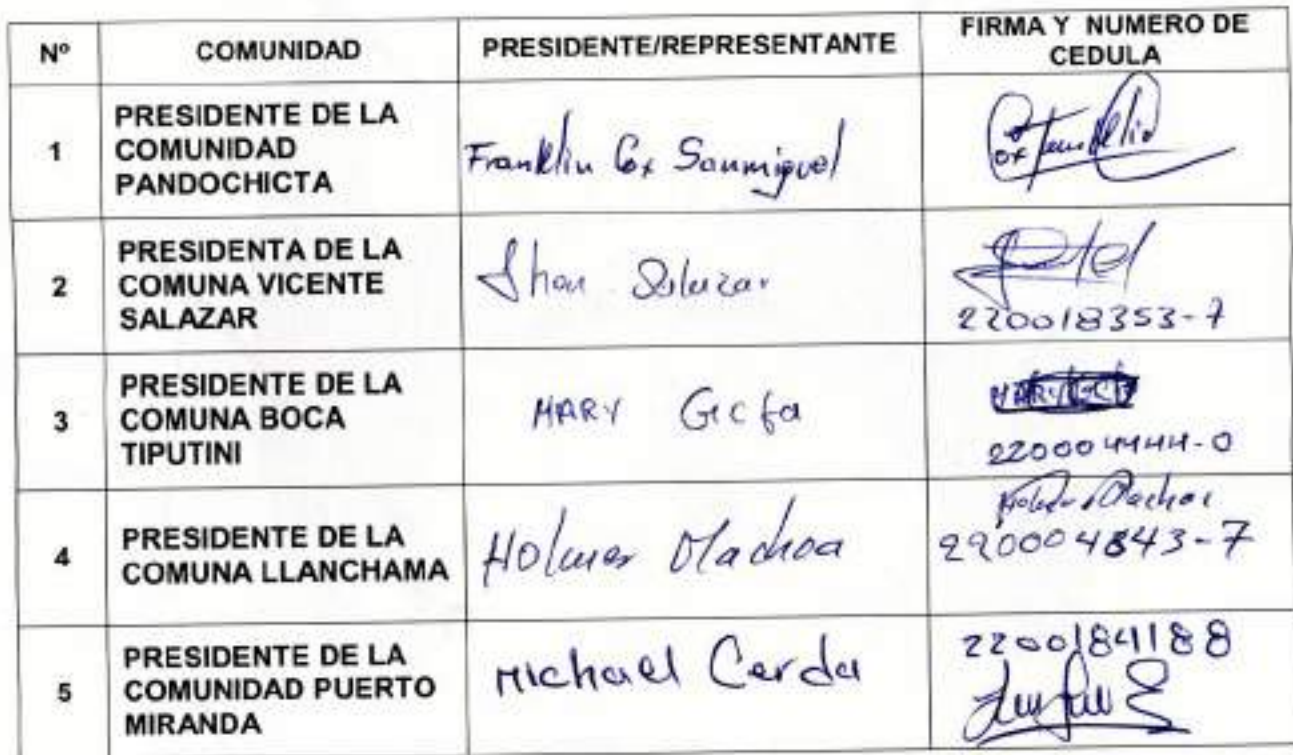 Nº COMUNIDAD PRESIDENTE/REPRESENTANTE FIRMA Y NUMERO DE CEDULA
1 PRESIDENTE DE LA COMUNIDAD PANDOCHICTA Franklin Cox Sanmiguel
2 PRESIDENTA DE LA COMUNA VICENTE SALAZAR Jhon Salazar 220018353-7
3 PRESIDENTE DE LA COMUNA BOCA TIPUTINI MARY 220004444-0
4 PRESIDENTE DE LA COMUNA LLANCHAMA Holmer Machoa 220004843-7
5 PRESIDENTE DE LA COMUNIDAD PUERTO MIRANDA Michael Cerda 2200184188